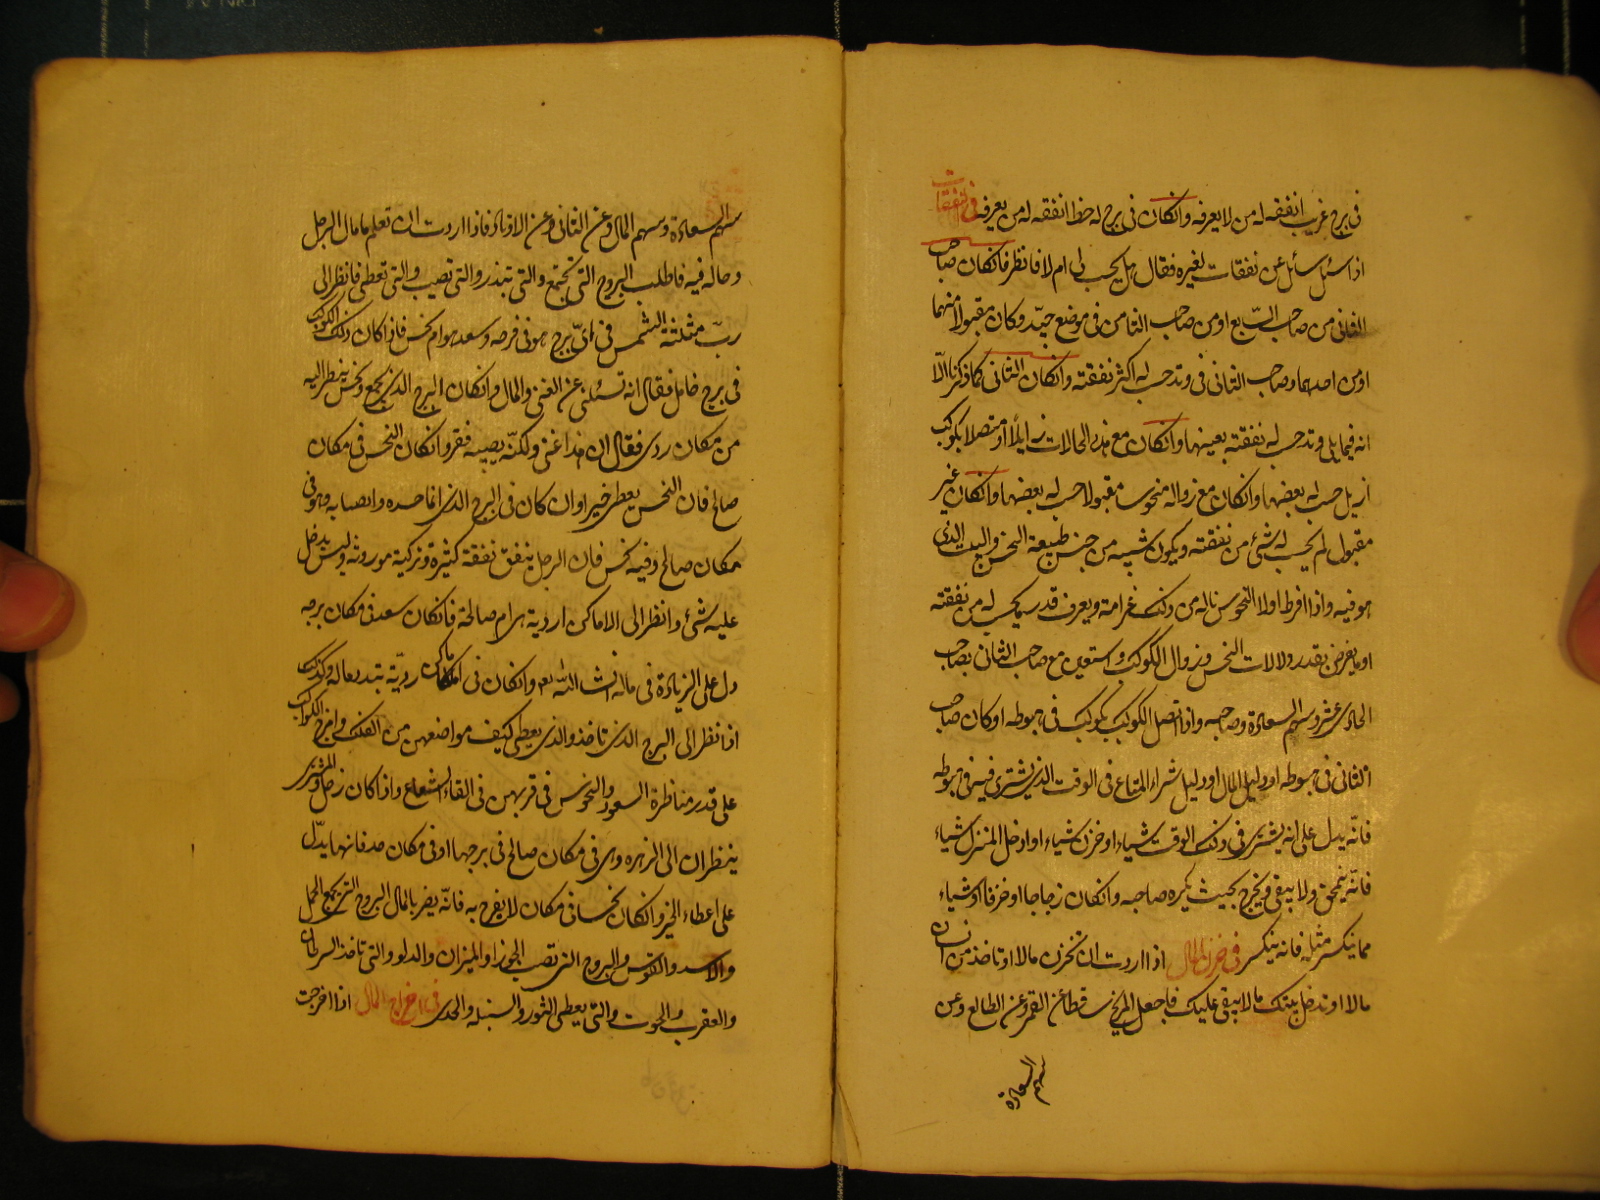 فى برج غريب انفقه له من لا يعرفه وانكان فى برج له حظ انفقه له من يعرفه فى النفقات
اذا سئل سائل عن نفقات لغيره فقال هل يحسب لى ام لا فانظر فانكان صاحب
الثانى من صاحب السابع او من صاحب الثامن فى موضع جيّد وكان مقبولا منهما
او من احدهما وصاحب الثانى فى وتد حسب له اكثر نفقته وانكان الثانى كما ذكرنا الّا
انه فيما يلى وتد حسب له نفقته بعينها وانكان مع هذه الحالات زايلا او متصلا بكوكب
زايل حسب له بعضها وانكان مع زواله منحوسا مقبولا حسب له بعضها وانكان غير
مقبول لم يحسب له شئ من نفقته ويكون سببه من جنس طبيعة النحس والبيت الذى
هو فيه واذا افرطوا النحوس ناله من ذلك غرامة ويعرف قدر ما يحسب له من نفقته
او ما يعرض بقدر دلالات النحس وزوال الكوكب واستعن مع صاحب الثانى بصاحب
الحادى عشر وسهم السعادة وصاحبه واذا اتصل الكوكب بكوكب فى هبوطه او كان صاحب
الثانى فى هبوطه او دليل المال او دليل شراء المتاع فى الوقت الذى يشترى فيه فى هبوطه
فانّه يدل على انه يشترى فى ذلك الوقت شياء او خزن شياء او ادخل المنزل شياء
فانّه يتمحق ولا يبقى ويخرج بحيث يكره صاحبه وانكان زجاجا او خزفا او شياء
مما ينكسر مثله فانه ينكسر فى خزن المال اذا اردت ان تخزن مالا او تاخذ من انسان
مالا او تدخل بيتك مالا يبقى عليك فاجعل المريخ ساقطا عن القمر وعن الطالع وعن
سهم السعادة
سهم السعادة وسهم المال وعن الثانى وعن الاوتاد فاذا اردت ان تعلم ما مال الرجل
وحاله فيه فاطلب البروج التى تجتمع والتى تبتذر والتى تصيب والتى تعطى فانظر الى
ربّ مثلثة الشمس فى اىّ برج هو فى فرحه وسعد هو ام نحس فاذا كان ذلك الكوكب
فى برج خامل فقال انه تسئلنى عن الغنى والمال وانكان البرج الذى يجمع ونحس ينظر اليه
من مكان ردى فقال ان هذا غنى ولكنّه يصيبه فقر وانكان النحس فى مكان
صالح فان النحس يعطى خيرا وان كان فى البرج الذى وهو فى
مكان صالح وفيه نحس فان الرجل ينفق نفقة كثيرة وتركية موروثه وليس يدخل
عليه شئ وانظر الى الاماكن اردية هى ام صالحة فانكان سعد فى مكان برجه
دل على الزيادة فى ماله انشاء اللّه تعه وانكان فى اماكن رديّة تبتد بماله وكذلك
اذا نظر الى البرج الذى تاخذ والذى يعطى كيف مواضعهن من الفلك وامزج الكواكب
على قدر مناظرة السعود والنحوس فى قربهن فى القاء الشعاع واذا كان زحل والمشترى
ينظران الى الزهره وهى فى مكان صالح فى برجها او فى مكان حد فانهما يدّل
على اعطاء الخير وانكان نحسا فى مكان لا يفرح به فانّه يضر بالمال البروج التى تجمع الحمل
والاسد والقوس والبروج التى تصيب الجوزا والميزان والدلو والتى تاخذ السرطان
والعقرب والحوت والتى يعطى الثور والسنبله والجدى فى اخراج المال اذا اخرجت